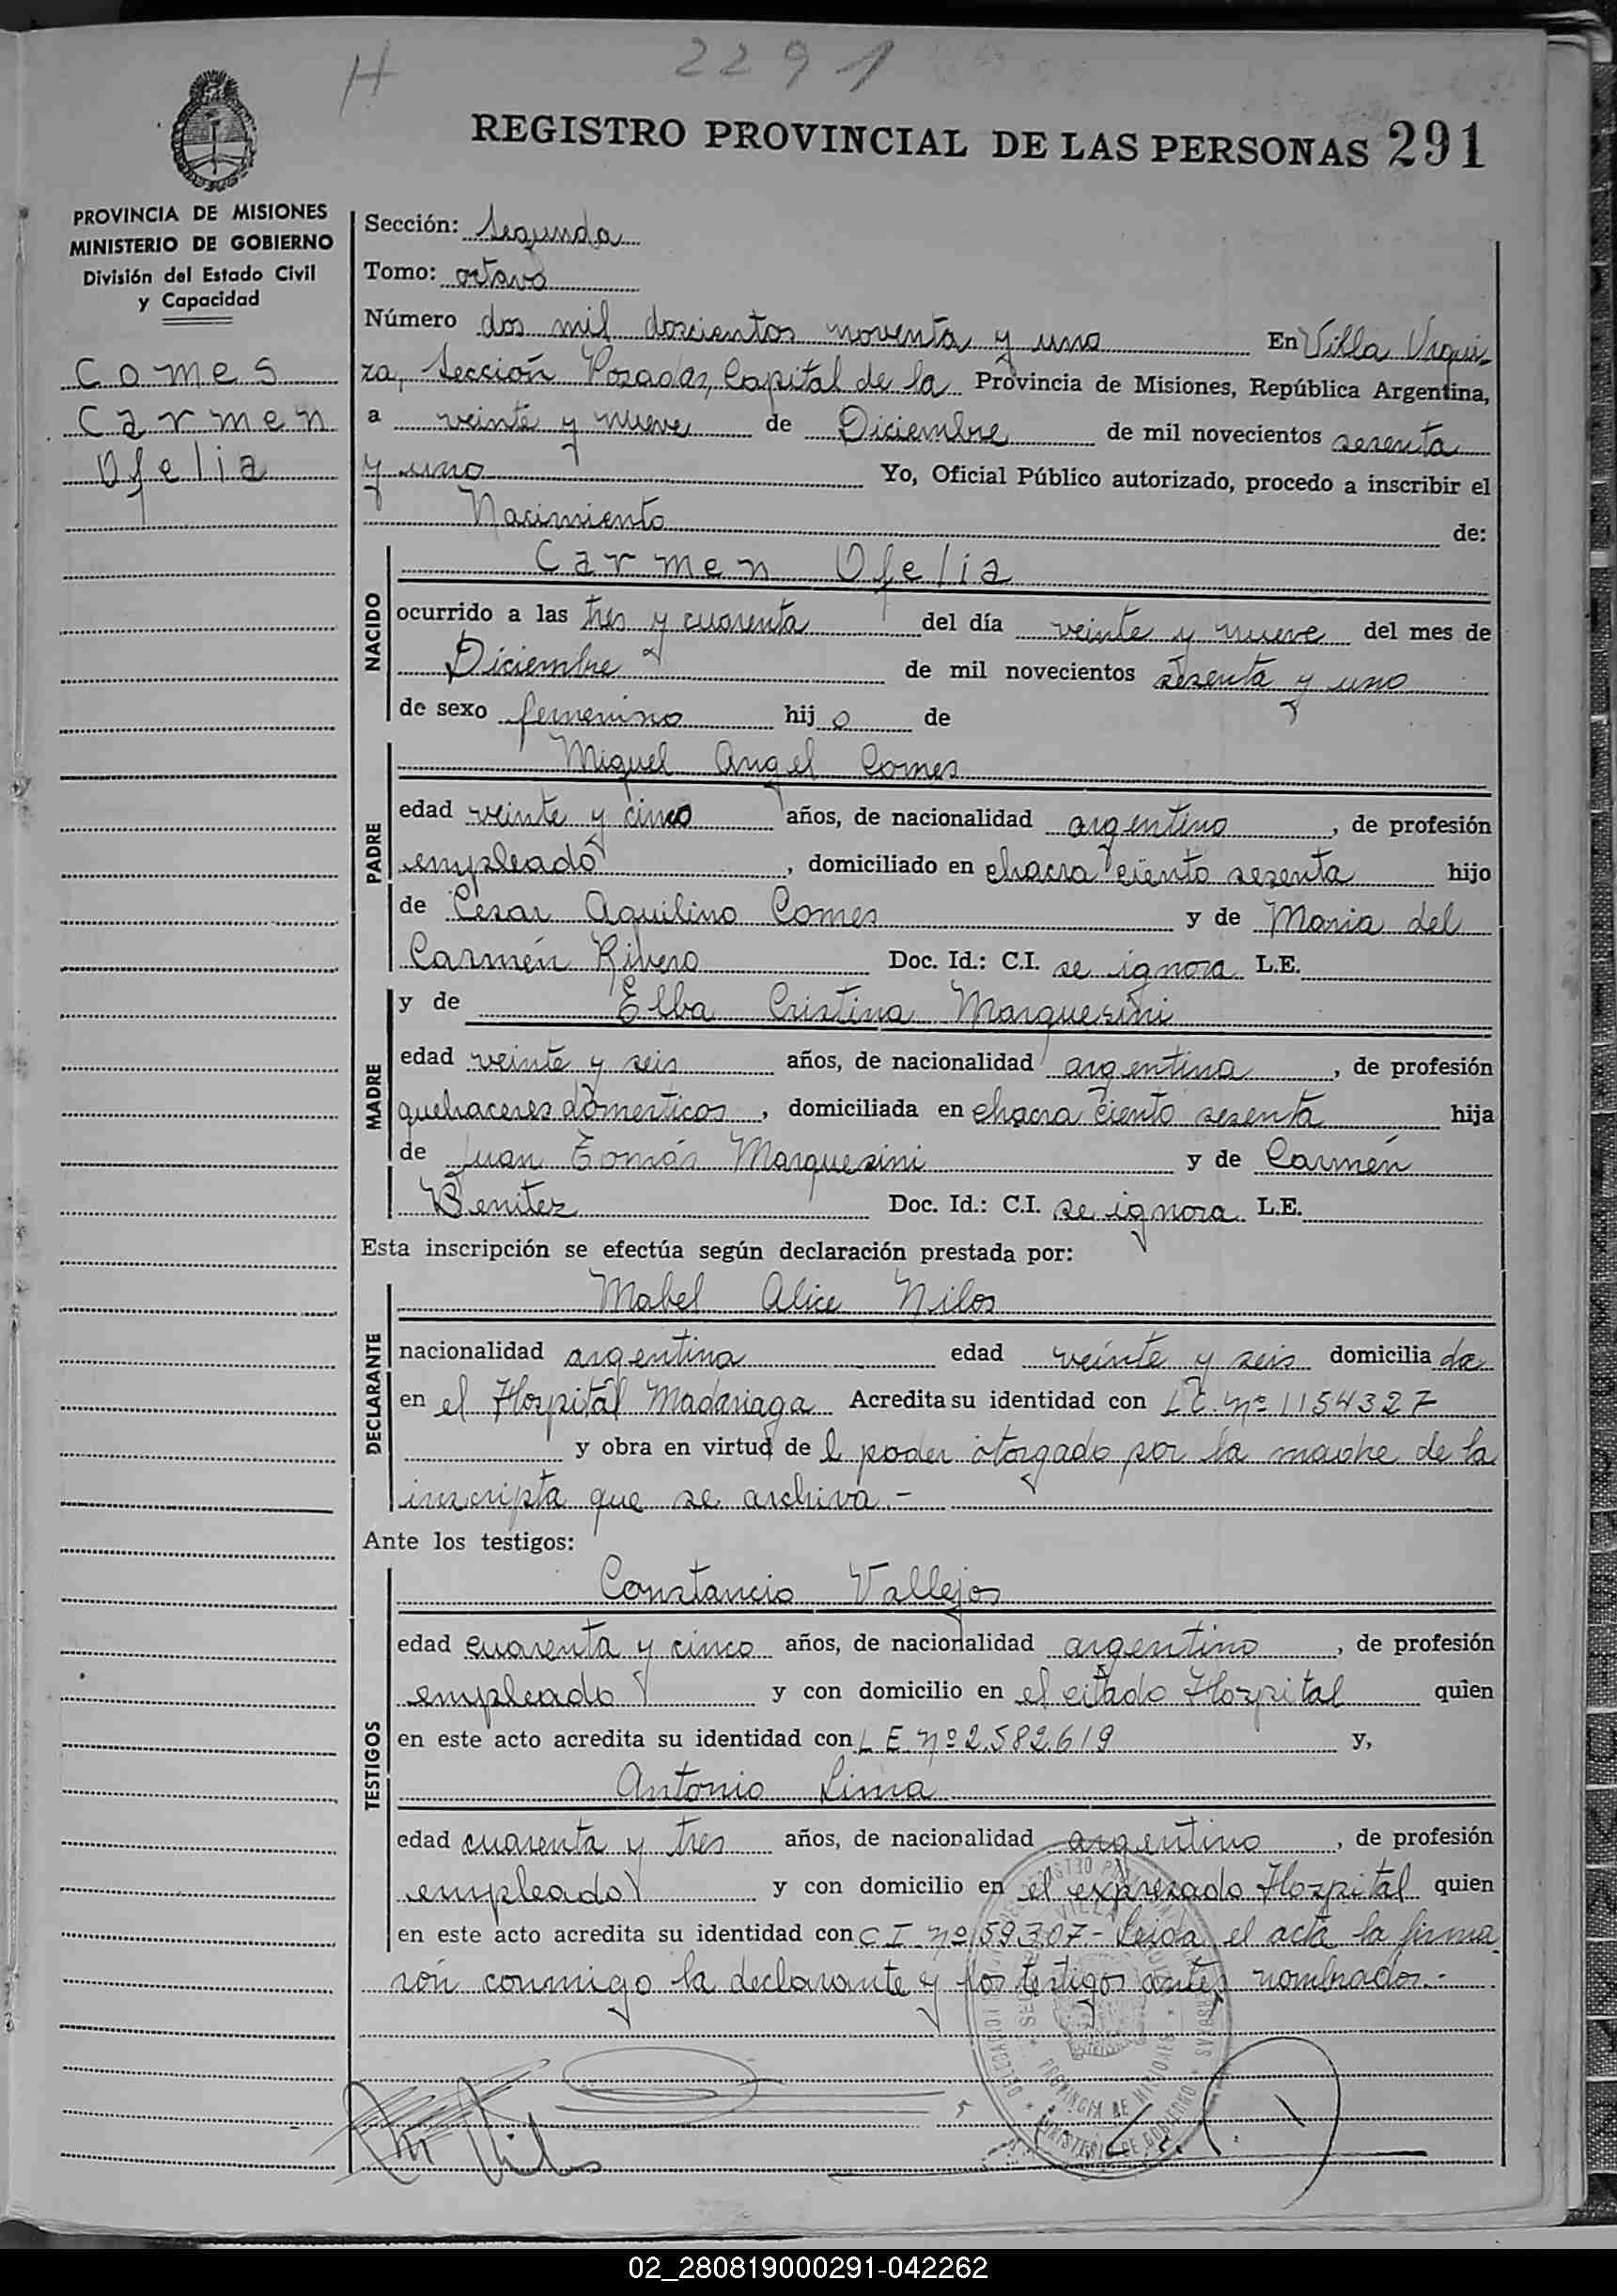 H 2291
REGISTRO PROVINCIAL DE LAS PERSONAS 291
PROVINCIA DE MISIONES
MINISTERIO DE GOBIERNO
División del Estado Civil
y Capacidad
Comes
Carmen
Ofelia
Sección: Segunda
Tomo: octavo
Número dos mil doscientos noventa y uno En Villa Urqui-
za, Sección Posadas, Capital de la Provincia de Misiones, República Argentina,
a veinte y nueve de Diciembre de mil novecientos sesenta
y uno Yo, Oficial Público autorizado, procedo a inscribir el
Nacimiento de:
NACIDO
Carmen Ofelia
ocurrido a las tres y cuarenta del día veinte y nueve del mes de
Diciembre de mil novecientos sesenta y uno
de sexo femenino hij o de
PADRE
Miguel Angel Comes
edad veinte y cinco años, de nacionalidad argentino, de profesión
empleado, domiciliado en chacra ciento sesenta hijo
de Cesar Aquilino Comes y de Maria del
Carmén Rivero Doc. Id.: C.I. se ignora L.E.
MADRE
y de Elba Cristina Marquesini
edad veinte y seis años, de nacionalidad argentina, de profesión
quehaceres domesticos, domiciliada en chacra ciento sesenta hija
de Juan Tomás Marquesini y de Carmén
Benitez Doc. Id.: C.I. se ignora L.E.
Esta inscripción se efectúa según declaración prestada por:
DECLARANTE
Mabel Alice Nilos
nacionalidad argentina edad veinte y seis domicilia da
en el Hospital Madariaga Acredita su identidad con L C. nº 1154327
y obra en virtud de l poder otorgado por la madre de la
inscripta que se archiva.-
Ante los testigos:
TESTIGOS
Constancio Vallejos
edad cuarenta y cinco años, de nacionalidad argentino, de profesión
empleado y con domicilio en el citado Hospital quien
en este acto acredita su identidad con L E. nº 2.582.619 y,
Antonio Lima
edad cuarenta y tres años, de nacionalidad argentino, de profesión
empleado y con domicilio en el expresado Hospital quien
en este acto acredita su identidad con C I. nº 159307.- Leida el acta la firma
rón conmigo la declarante y los testigos antes nombrados.-
PROVINCIA DE MISIONES
MINISTERIO DE GOBIERNO
02_280819000291-042262